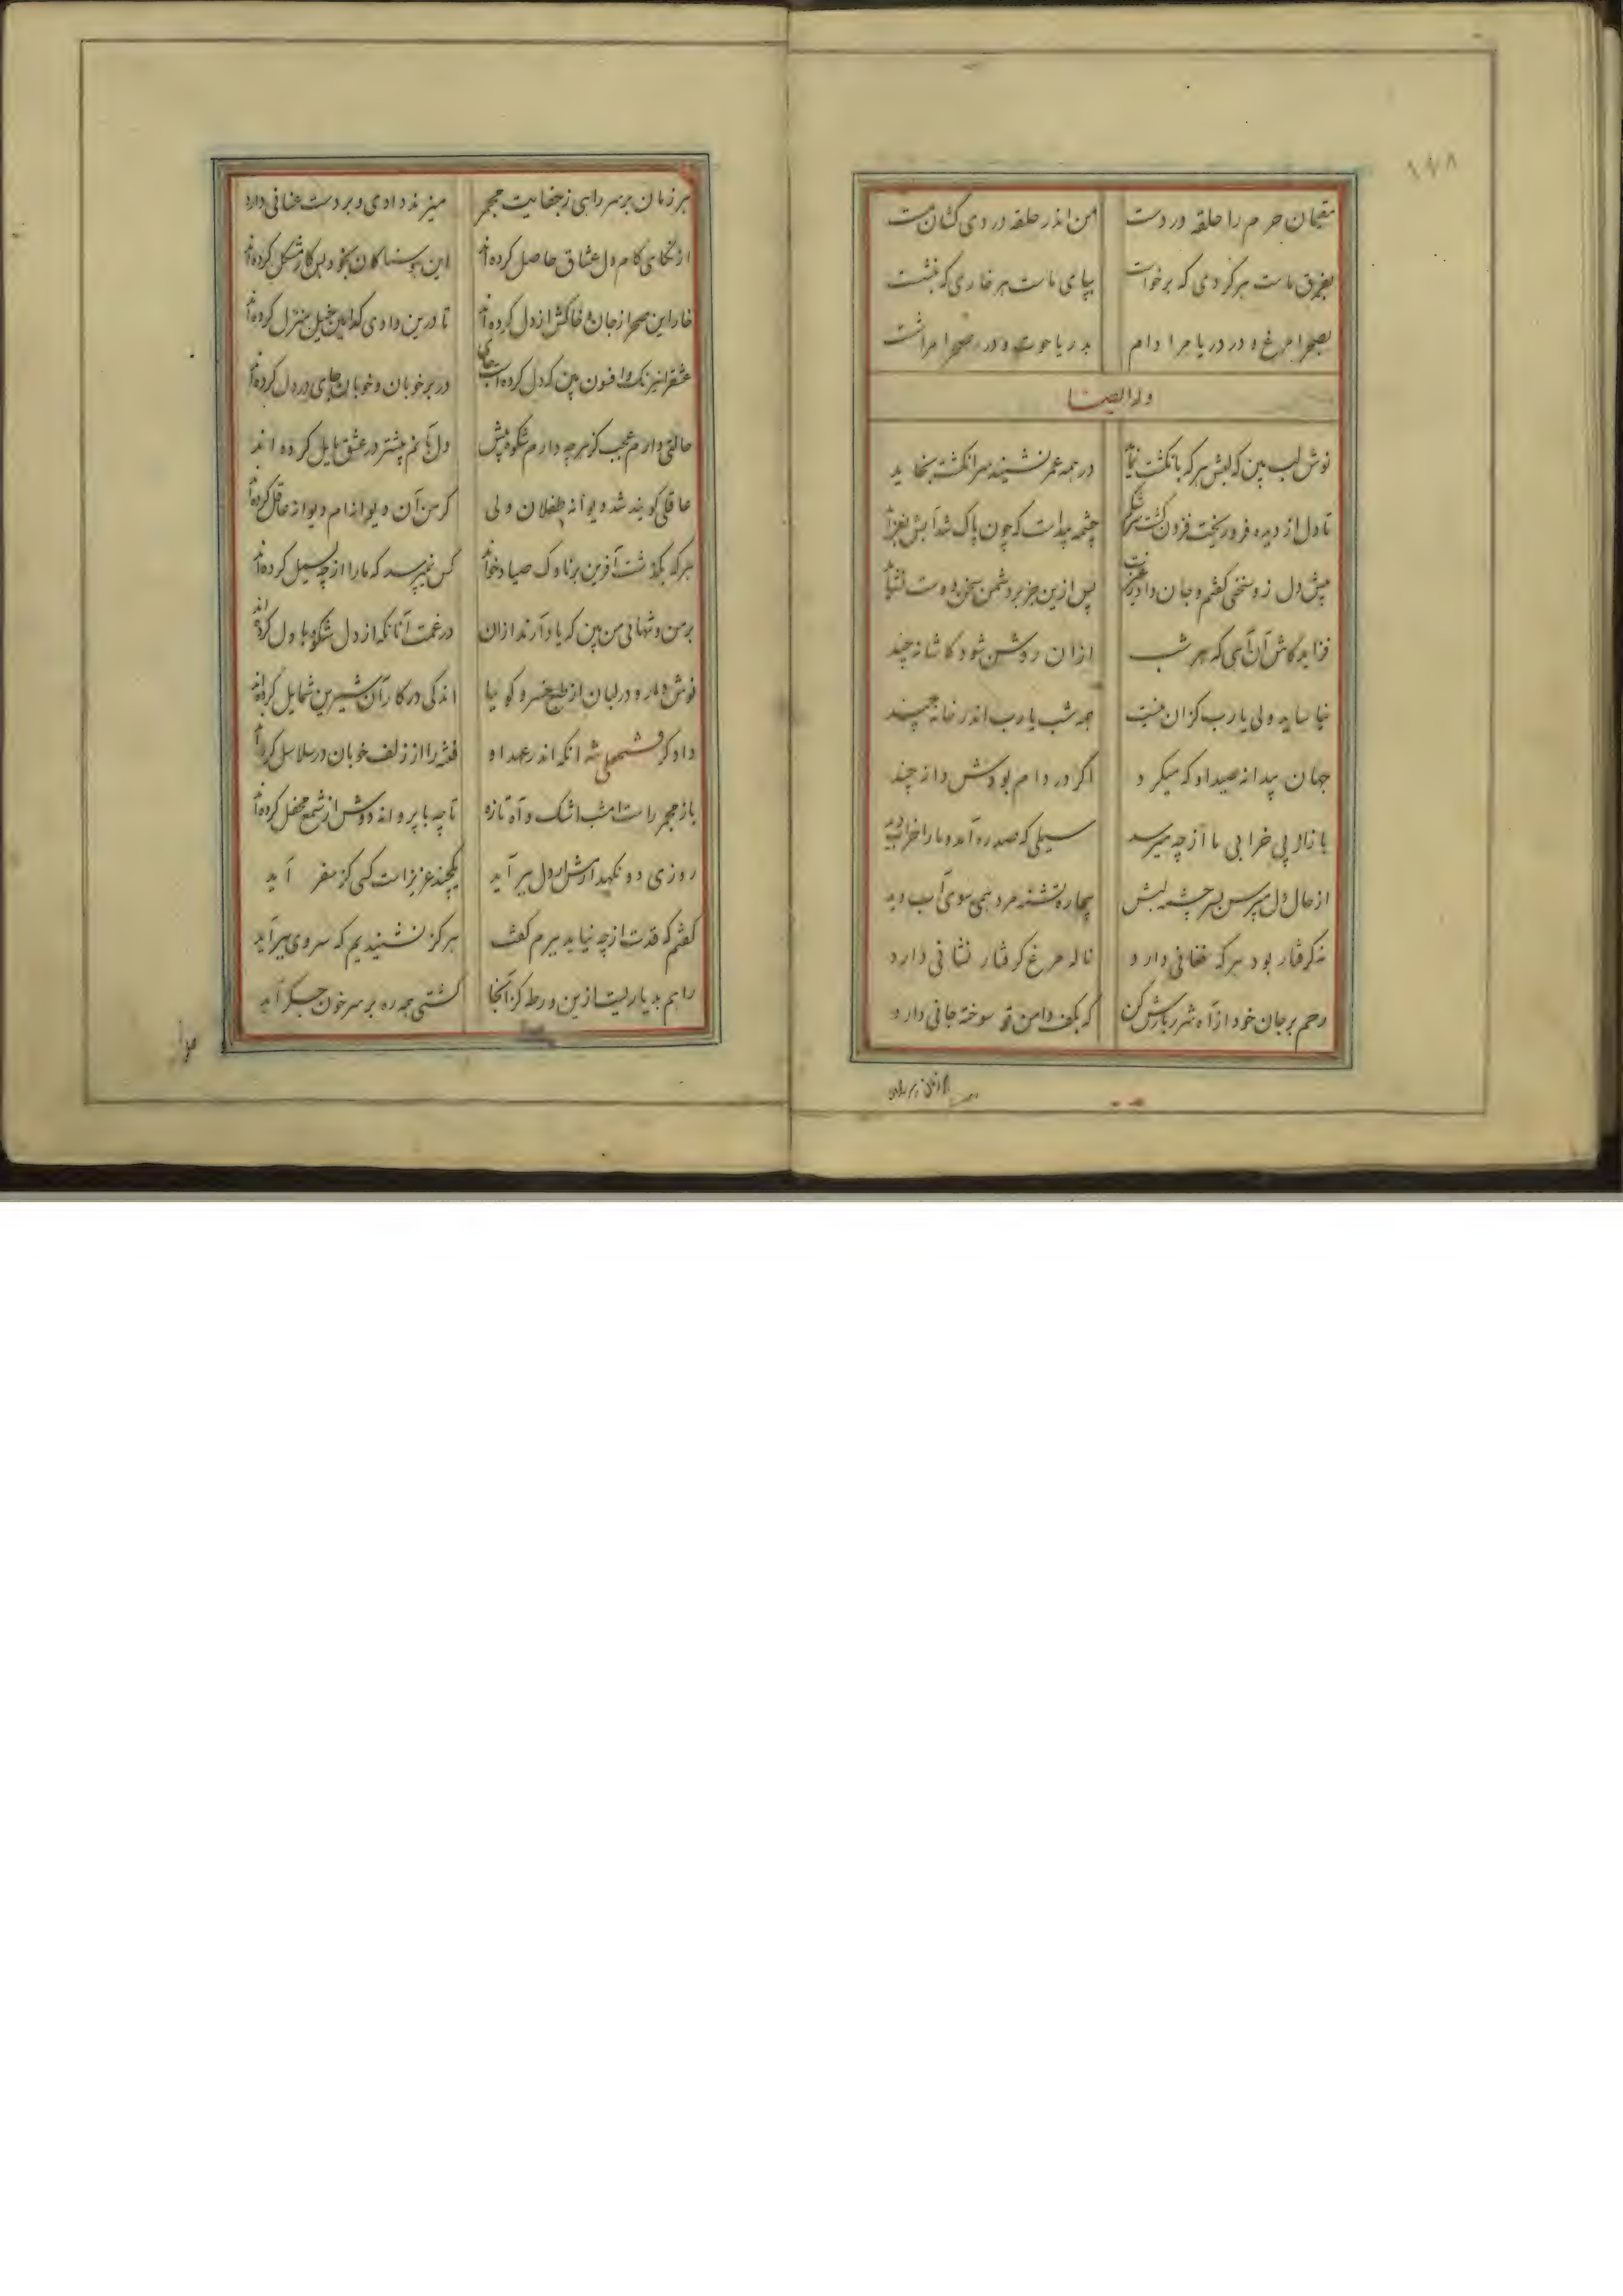 ۱۷۸
مقیمان حرم را حلقه در دست
من اندر حلقه دردی کشان مست
بفرق ماست هر گردی که برخواست
بپای ماست هر خاری که بنشست
بصحرا مرغ و در دریا مرا دام
بدریا حوت و در صحرا مراشست
وله ایضا
نوش لب بین که لبش هر که بانگشت نماید
در همه عمر نشیند سر انگشت بخاید
تا دل از دیده فرو ریخت فزون گشت سرشکم
چشمه پیداست که چون پاک شد آبش بفزاید
پیش دل زو سخنی گفتم و جان داد
پس ازین جز بر دشمن سخن دوست نشاید
فزاید کاش آن آهی که هر شب
ازان روشن شود کاشانه چند
نیاساید ولی یارب کزان نیست
همه شب یارب اندر خانه چند
جهان پیدا نه صیداو که میکرد
اگر در دام بودش دانه چند
بازاز پی خرابی ما از چه میرسد
سیلی که صدره آمد و ما را خراب دید
از حال دل مپرس بسرچشمه لبش
بیچاره تشنه مرد همی سوی آب دید
نه گرفتار بود هر که فغانی دارد
ناله مرغ گرفتار نشانی دارد
رحم بر جان خود از آه شرر بارش کن
که بکف دامن تو سوخته جانی دارد
هر زمان بر سر راهی ز جفایت مجمر
میزند دادی و بر دست عنانی دارد
از نگاهی کام دل عشاق حاصل کرده‌اند
این
خار این صحرا ز جان و خاکش از دل کرده‌اند
تا درین وادی کدامین خیل منزل کرده‌اند
عشق را نیرنگ و افسون بین که دل کرده است جای
در بر خوبان و خوبان جای در دل کرده‌اند
حالتی دارم عجب کز هر چه دارم شکوه پیش
دل بآنم پیشتر در عشق مایل کرده‌اند
عاقلی گویند شد دیوانه طفلان ولی
گر من آن دیوانه‌ام دیوانه عاقل کرده‌اند
هر که بگذشت آفرین بر ناوک صیاد خواند
کس نمیپرسد که ما را از چه بسمل کرده‌اند
بر من و تنهائی من بین که یاد آرند ازان
در غمت آنانکه از دل شکوه با دل کرده‌اند
نوش دارد در لبان از طبع خسرو گوئیا
اندکی در کار آن شیرین شمایل کرده‌اند
دادگر فتحعلی شه آنکه اندر عهد او
فتنه را از زلف خوبان در سلاسل کرده‌اند
باز مجمر راست امشب اشک و آه تازه
تا چه با پروانه دوش از شمع محفل کرده‌اند
روزی دو نگهدارش ار دل ببر آید
یکچند عزیز است کسی کز سفر آید
گفتم که قدت از چه نیاید ببرم گفت
هرگز نشنیدیم که سروی ببر آید
راهم بدیاریست ازین ورطه کز آنجا
کشتی همه ره بر سر خون جگر آید